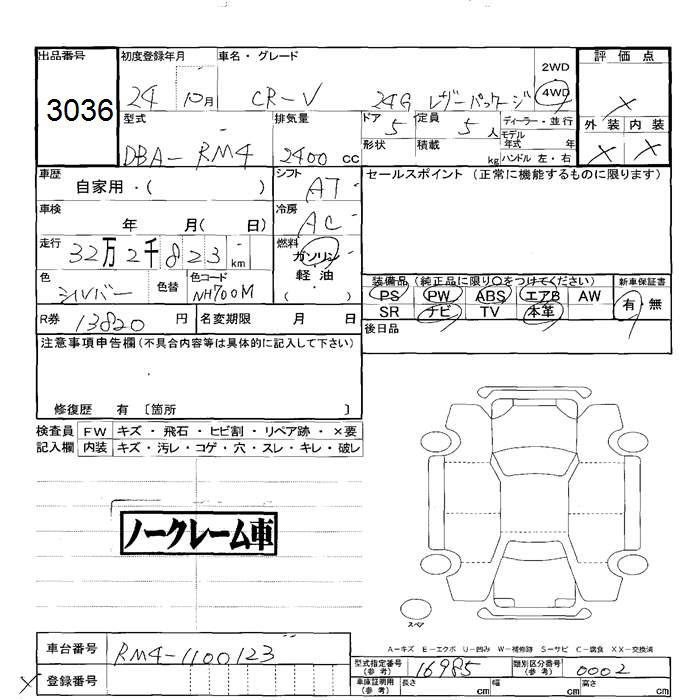 出品番号 初度登録年月 車名・グレード 2WD 評価点
3036 24 10月 CR-V 24G レザーパッケージ 4WD ×
型式 排気量 ドア 5 定員 5人 ディーラー・並行 外装 内装
DBA-RM4 2400cc 形状 積載 kg モデル年式 年 × ×
ハンドル 左・右
車歴 自家用・( ) シフト AT セールスポイント (正常に機能するものに限ります)
車検 年 月( 日) 冷房 AC
走行 32万2千823km 燃料 ガソリン
軽油
( )
色 シルバー 色替 色コード NH700M
装備品 (純正品に限り○をつけてください) 新車保証書
PS PW ABS エアB AW 有・無
SR ナビ TV 本革
R券 13820円 名変期限 月 日 後日品
注意事項申告欄(不具合内容等は具体的に記入して下さい)
修復歴 有 〔箇所 〕
検査員 FW キズ・飛石・ヒビ割・リペア跡・×要
記入欄 内装 キズ・汚レ・コゲ・穴・スレ・キレ・破レ
ノークレーム車
スペア
A-キズ E-エクボ U-凹み W-補修跡 S-サビ C-腐食 XX-交換済
車台番号 RM4-1100123 型式指定番号(参考) 16985 類別区分番号(参考) 0002
× 登録番号 車庫証明用(参考) 長さ cm 幅 cm 高さ cm